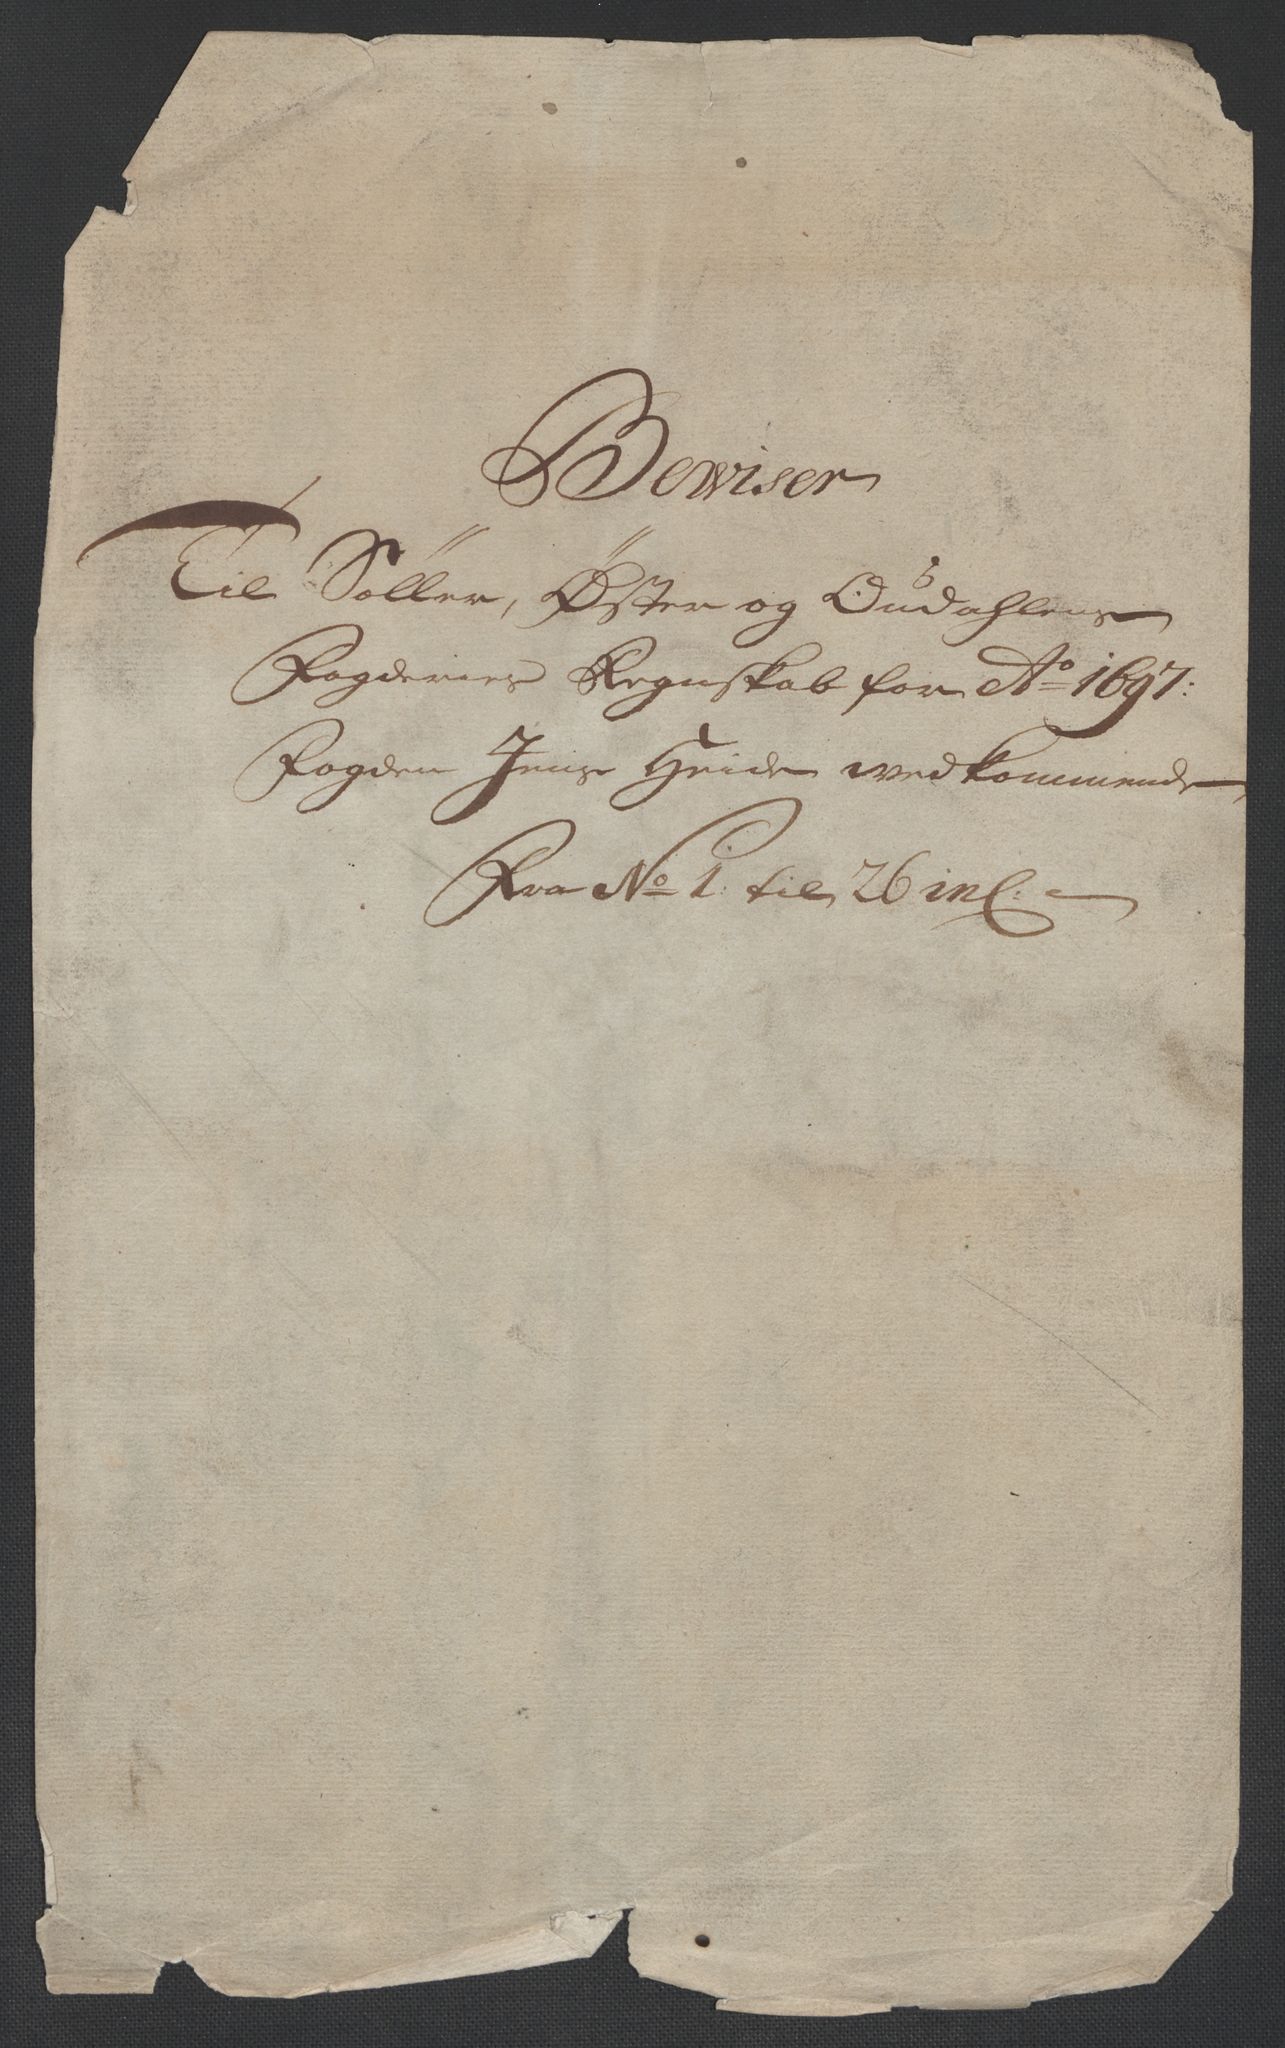 Bewiser
Til Sollør, Øster og Oudahlens
Fogderies Regnskab for Ao 1697:
Fogden Jens Heide wedkommende,
Fra No 1: til 26 incl: